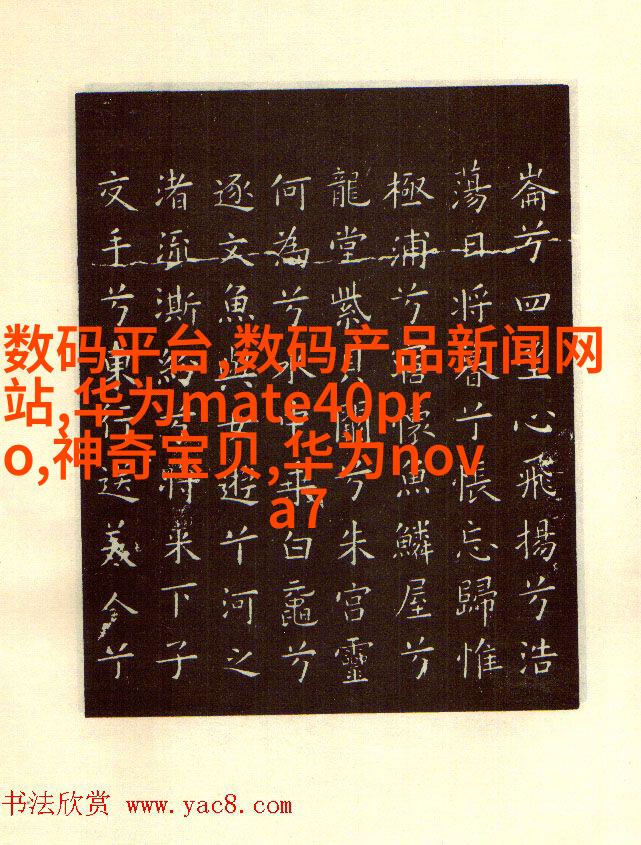 崙兮四望心飛揚兮浩
蕩日將暮兮悵忘歸惟
極浦兮寤懷魚鱗屋兮
龍堂紫貝闕兮朱宮靈
何為兮水中乘白黿兮
逐文魚與女遊兮河之
渚流澌紛兮將來下子
交手兮東行送美人兮
数码平台,数码产品新闻网
站,华为mate40pr
o,神奇宝贝,华为nov
a7
书法欣赏 www.yac8.com